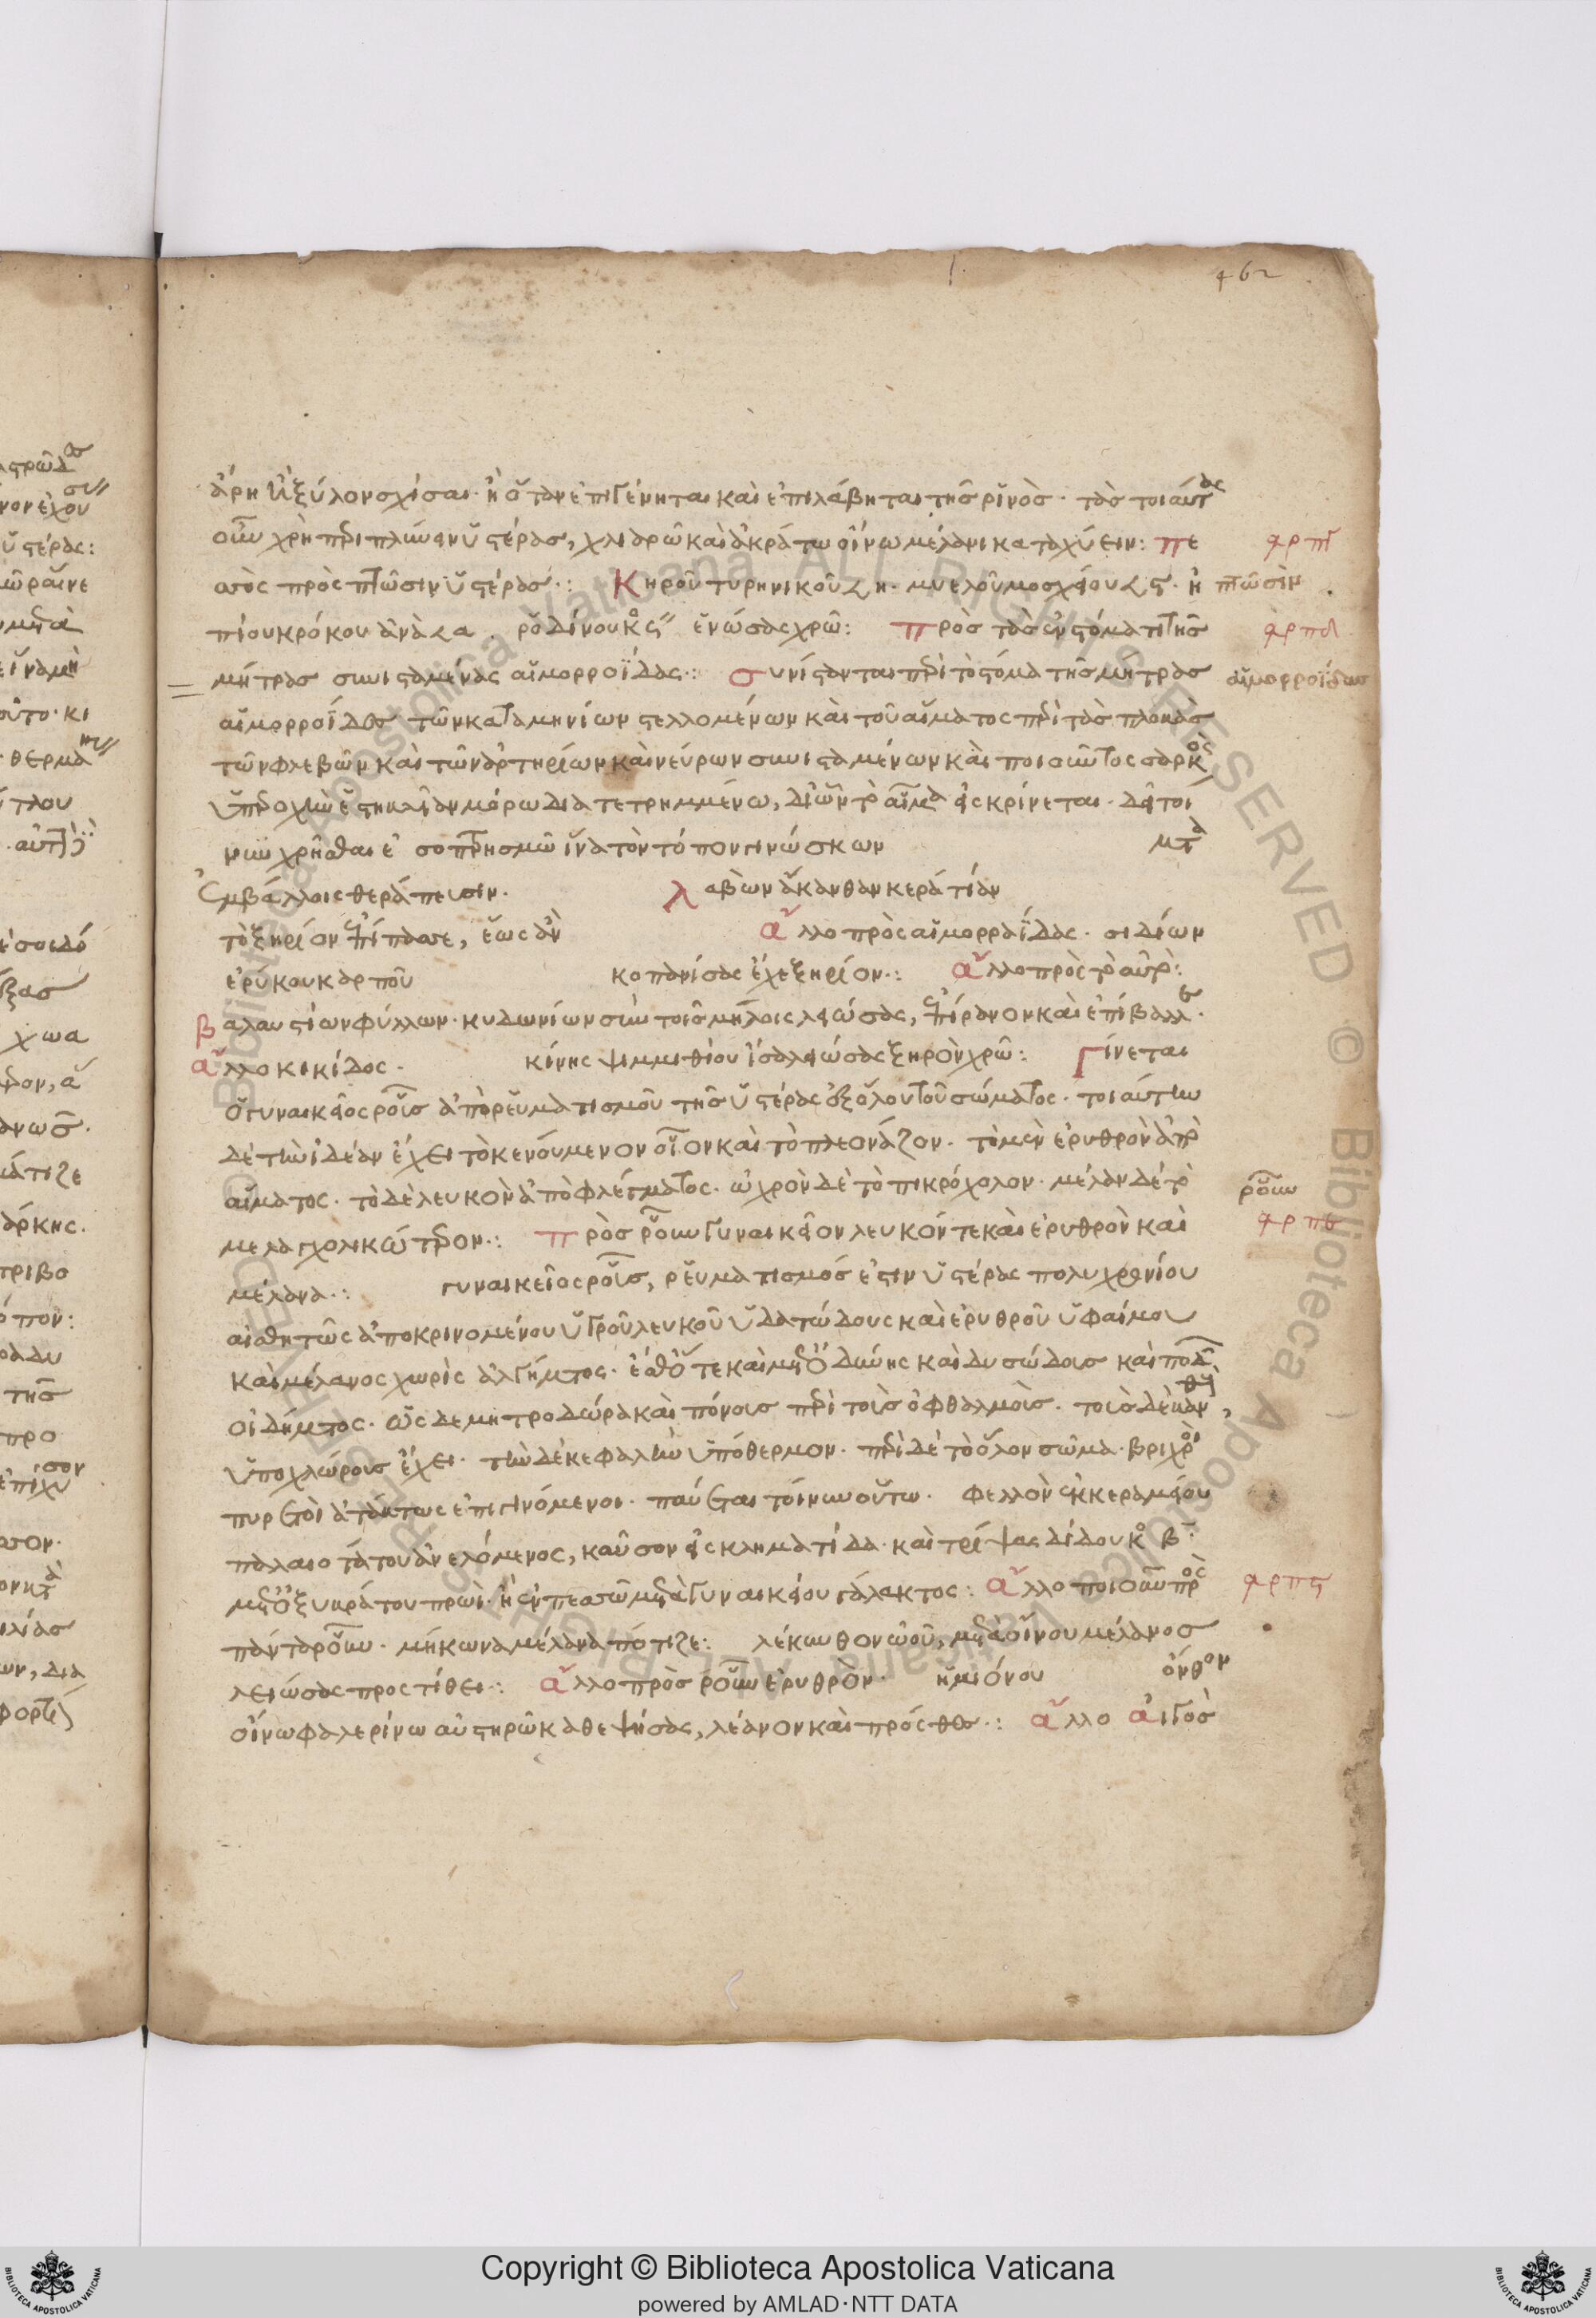 462
ἄρη ἢ ξύλον σχίσαι· ἢ ὅταν ἐπιγένηται καὶ ἐπιλάβηται τῆς ῥινὸς· τὰς τοιαύτας
οὖν χρὴ περιπλύνειν ὑστέρας, χλιαρῶ καὶ ἀκράτω οἴνω μέλανι καταχύειν: πε
σσὸς πρὸς πτῶσιν ὑστέρας·: Κηροῦ τυρηνικοῦ 𐅻 η· μυελοῦ μοσχείου 𐅻 ς· ἢ
πίου κρόκου ἀνὰ 𐅻 α· ῥοδίνου κ ς ἑνώσας χρῶ: πρὸς τὰς ἐν στόματι τῆς
μήτρας συνισταμένας αἱμορροΐδας·: συνίστανται περὶ τὸ στόμα τῆς μήτρας
αἱμορροΐδες τῶν καταμηνίων στελλομένων καὶ τοῦ αἵματος περὶ τὰς πλοκὰς
τῶν φλεβῶν καὶ τῶν ἀρτηρίων καὶ νεύρων συνισταμένων καὶ ποιοῦντος σαρκὸς
ὑπεροχὴν μόρω διατετρημμένω, δι' ὧν τὸ αἷμα ἐκκρίνεται· δεῖ τοί
νυν χρῆσθαι ἐ σοπτρισμῶ ἵνα τὸν τόπον γινώσκων μετὰ
ἐμβάλλοις θεράπευσιν· λαβὼν ἄκανθαν κερατίαν
τὸ ξηρίον ἐπίπασσε, ἕως ἂν ἄλλο πρὸς αἱμορραΐδας· σιδίων
ἐρύκου καρποῦ κοπανίσας ἔχε ξηρίον·: ἄλλο πρὸς τὸ αὐτὸ:
βαλαυστίων φύλλων· κυδωνίων σὺν τοῖς μήλοις λειώσας, ἐπίρανον καὶ ἐπίβαλλε·
ἄλλο κικίδος· κίνης ψιμμιθίου ἴσα λειώσας ξηρὸν χρῶ: Γίνεται
ὁ γυναικεῖος ῥοῦς ἀπὸ ρευματισμοῦ τῆς ὑστέρας ἐξ ὅλου τοῦ σώματος· τοιαύτην
δὲ τὴν ἰδέαν ἔχει τὸ κενούμενον οἷον καὶ τὸ πλεονάζον· τὸ μὲν ἐρυθρὸν ἀπὸ
αἵματος· τὸ δὲ λευκὸν ἀπὸ φλέγματος· ὠχρὸν δὲ τὸ πικρόχολον· μέλαν δὲ τὸ
μελαγχολικώτερον·: πρὸς ῥοῦν γυναικεῖον λευκόν τε καὶ ἐρυθρὸν καὶ
μέλανα·: γυναικεῖος ῥοῦς, ῥευματισμός ἐστιν ὑστέρας πολυχρονίου
αἰσθητῶς ἀποκρινομένου ὑγροῦ λευκοῦ ὑδατώδους καὶ ἐρυθροῦ ὑφαίμου
καὶ μέλανος χωρὶς ἀλγήματος· ἔσθ' ὅτε καὶ μετ' ὀδύνης καὶ δυσώδους καὶ ποδῶν
οἰδήματος· ὥς δε μητροδώρα καὶ πόνους περὶ τοὺς ὀφθαλμοὺς· τοὺς δὲ κανθοὺς,
ὑποχλώρους ἔχει· τὴν δὲ κεφαλὴν ὑπόθερμον· περὶ δὲ τὸ ὅλον σῶμα· βριχροὶ
πυρετοὶ ἀτάκτως ἐπιγινόμενοι· παύεται τοίνυν οὕτω· φελλὸν ἐκ κεραμείου
παλαιοτάτου ἀνελόμενος, καῦσον εἰς κληματίδα· καὶ τρίψας δίδου κ β
μετ' ὀξυκράτου πρωὶ· ἢ ἐν πεσσῶ μετὰ γυναικείου γάλακτος: ἄλλο ποιοῦν πρὸς
πάντα ροῦν· μήκωνα μέλανα πότιζε: λέκυνθον ὠοῦ, μετὰ οἴνου μέλανος
λειώσας προστίθει·: ἄλλο πρὸς ῥοῦν ἐρυθρὸν· ἡμιόνου ὄνθον
οἴνω φαλερίνω αὐστηρῶ καθεψήσας, λέανον καὶ πρόσθες·: ἄλλο αἰγὸς
πτῶσιν
αἱμορροΐδας
ῥοῦν